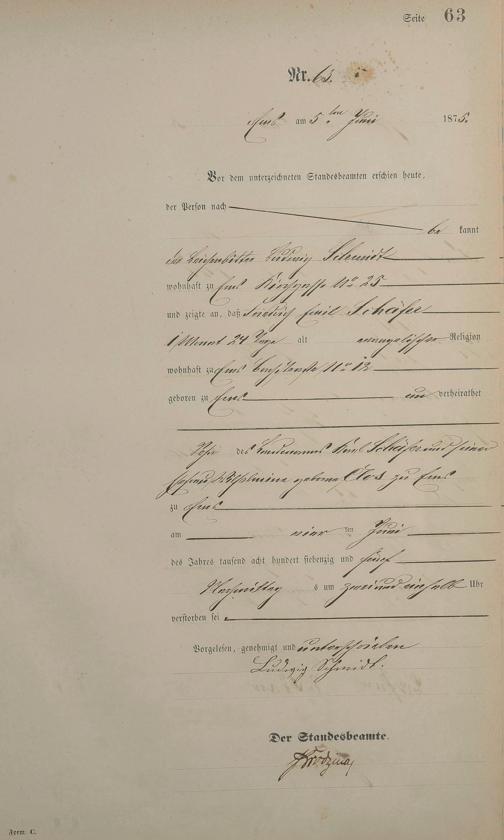 Seite 63
Nr. 63.
Ems am 5ten Juni 1875.
Vor dem unterzeichneten Standesbeamten erschien heute,
der Person nach
be kannt
der Ludwig Schmidt
wohnhaft zu Ems No 25
und zeigte an, daß Emil Schäfer
1 Monat 24 Tage alt evangelischer Religion
wohnhaft zu Ems No 12
geboren zu Ems un verheirathet
Sohn des Karl Schäfer und seiner
Ehefrau Wilhelmine geborene Clos zu Ems
zu Ems
am vier ten Juni
des Jahres tausend acht hundert siebenzig und fünf
Nachmittag s um zwei und einhalb Uhr
verstorben sei
Vorgelesen, genehmigt und unterschrieben
Ludwig Schmidt.
Der Standesbeamte.
Form C.